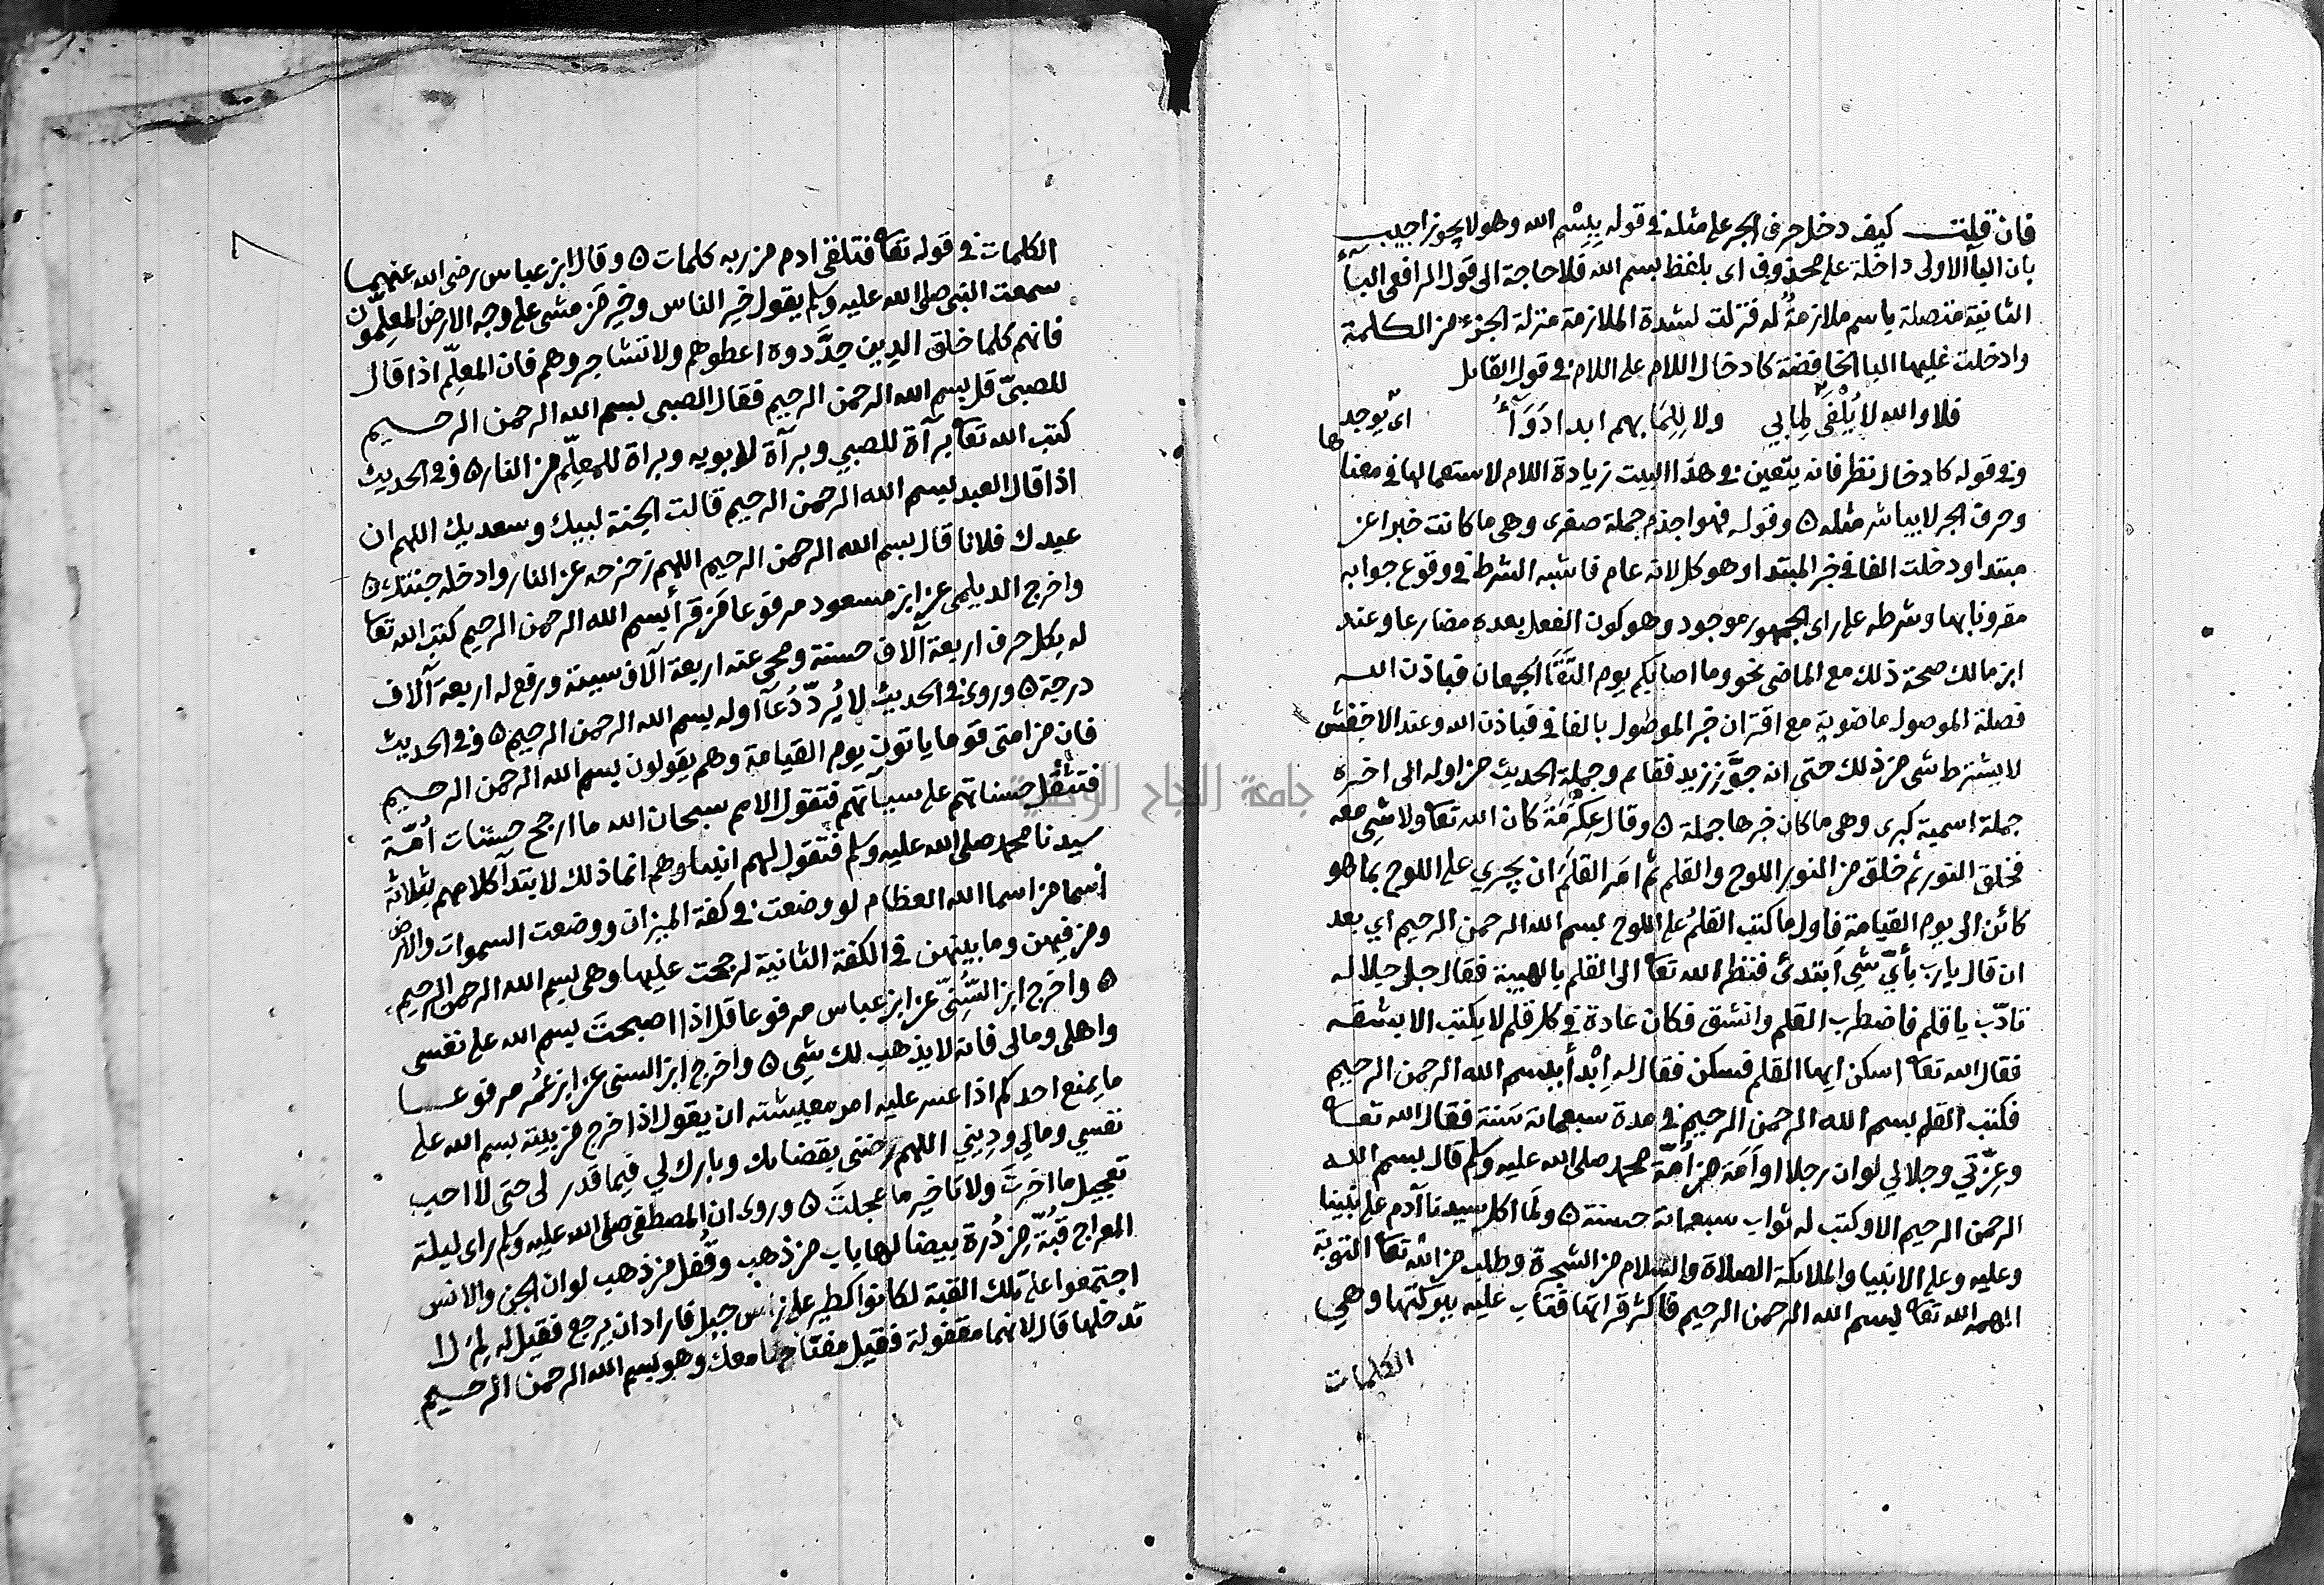 فان قلت كيف دخل حرف الجر على مثله في قوله ببِسْم الله وهو لا يجوز اجيب
بان الباء الاولى داخلة على محذوف اى بلفظ بسم الله فلا حاجة الى قول الرافعى الباء
الثانية متصلة باسم ملازمةٌ له فنزلت لشدة الملازمة منزلة الجزء من الكلمة
وادخلت عليها البا الخافضة كادخال اللام على اللام في قول القايل
فلا والله لا يُلْفَى لِمابي ولا لِلِمَا بهم ابدا دَوَآءُ اىّ يوجد
وفي قوله كادخال نظر فانه يتعين في هذا البيت زيادة اللام لاستعمالها في معناها
وحرف الجر لا يباشر مثله ٥ وقوله فهو اجذم جملة صغرى وهى ما كانت خبرا عن
مبتدا ودخلت الفا في خبر المبتدا وهو كل لانه عام فاشبه الشرط في وقوع جوابه
مقرونا بها وشرطه على راى الجمهور موجود وهو كون الفعل بعده مضارعا وعند
ابن مالك صحة ذلك مع الماضى نحو وما اصابكم يوم التَقَا الجمعان فباذن الله
فصلة الموصول ماضوية مع اقتران خبر الموصول بالفا في فباذن الله وعند الاخفش
لا يشترط شى من ذلك حتى انه جوَّز زيد فقام وجملة الحديث من اوله الى اخره
جملة اسمية كبرى وهى ما كان خبرها جملة ٥ وقال عِكْرِمَة كان الله تعا ولا شى معه
فخلق النور ثم خلق من النور اللوح والقلم ثم امَر القلَمَ ان يجري على اللوح بما هو
كائن الى يوم القيامة فاول ما كتب القلمُ على اللوح بسم الله الرحمن الرحيم اي بعد
ان قال يارب بأيّ شيِ اَبتدئ فنظر الله تعا الى القلم بالهيبة فقال جل جلاله
تادّب يا قلم فاضطرب القلم وانشق فكان عادة في كل قلم لا يكتب الا بشقه
فقال الله تعا اسكن ايها القلم فسكن فقال له اِبْدأ ببسم الله الرحمن الرحيم
فكتب القلم بسم الله الرحمن الرحيم في مدة سبعمائة سَنة فقال الله تعا
وعِزّتي وجلالي لو ان رجلا او اَمَة من اُمّة محمد صلى الله عليه وسلم قال بسم الله
الرحمن الرحيم الا وكتب له ثواب سبعمائة حسنة ٥ ولَما اكل سيدنا آدم على نبينا
وعليه وعلى الانبيا والملائكة الصلاة والسلام من الشجرة وطلب من الله تعا التوبة
الهمه الله تعا ببسم الله الرحمن الرحيم فاكثر قراتها فتاب عليه ببركتها وهي
الكلمات
الكلمات في قوله تعا فتلقى ادم من ربه كلمات ٥ وقال ابن عباس رضى الله عنهما
سمعت النبى صلى الله عليه وسلم يقول خير الناس وخير مَن مشى على وجه الارض المعلِمّون
فانهم كلما خلق الدين جدَّدوه اعطوهم ولا تشاجروهم فان المعلِمّ اذا قال
للصبىّ قل بسم الله الرحمن الرحيم فقال الصبى بسم الله الرحمن الرحيم
كتب الله تعا برآة للصبي وبرآة لابويه وبراة للمعلِمّ من النار ٥ وفي الحديث
اذا قال العبد بسم الله الرحمن الرحيم قالت الجنة لبيك وسعديك اللهم ان
عبدك فلانا قال بسم الله الرحمن الرحيم اللهم زحزحه عن النار وادخله جنتك ٥
واخرج الديلمى عن ابن مسعود مرفوعا مَن قرأ بسم الله الرحمن الرحيم كتب الله تعا
له بكل حرف اربعة آلاف حسنة ومحى عنه اربعة آلاف سيئة ورفع له اربعة آلاف
درجة ٥ وروى في الحديث لا يُردّ دُعآ اوله بسم الله الرحمن الرحيم ٥ وفي الحديث
فان من امتى قوما ياتون يوم القيامة وهم يقولون بسم الله الرحمن الرحيم
فتثقل حسناتهم على سيآتهم فتقول الامم سبحان الله ما ارجح حسنات اُمّة
سيدنا محمد صلى الله عليه وسلم فتقول لهم انبياوهم انما ذلك لابتدآ كلامهم بثلاثة
اسما من اسما الله العظام لو وضعت في كفة الميزان ووضعت السموات والارض
ومن فيهن وما بينهن في الكفة الثانية لرجحت عليها وهى بسم الله الرحمن الرحيم
٥ واخرج ابن السُّنِىّ عن ابن عباس مرفوعا قل اذا اصبحتَ بسم الله على نفسى
واهلى ومالى فانه لا يذهب لك شى ٥ واخرج ابن السنى عن ابن عُمر مرفوعا
ما يمنع احدكم اذا عسر عليه امر معيشته ان يقول اذا خرج من بيته بسم الله على
نفسي ومالي ودِيني اللهم رضنى بقضائك وبارك لي فيما قدر لى حتى لا احب
تعجيل ما اخرتَ ولا تاخير ما عجلتَ ٥ وروى ان المصطفى صلى الله عليه وسلم راى ليلة
المعراج قبةً من دُرة بيضا لها باب من ذهب وقُفل من ذهب لو ان الجن والانس
اجتمعوا على تلك القبة لكانوا كطير على راس جبل فاراد ان يرجع فقيل له لِمَ لا
تدخلها قال لانها مقفولة فقيل مفتاحها معك وهو بسم الله الرحمن الرحيم